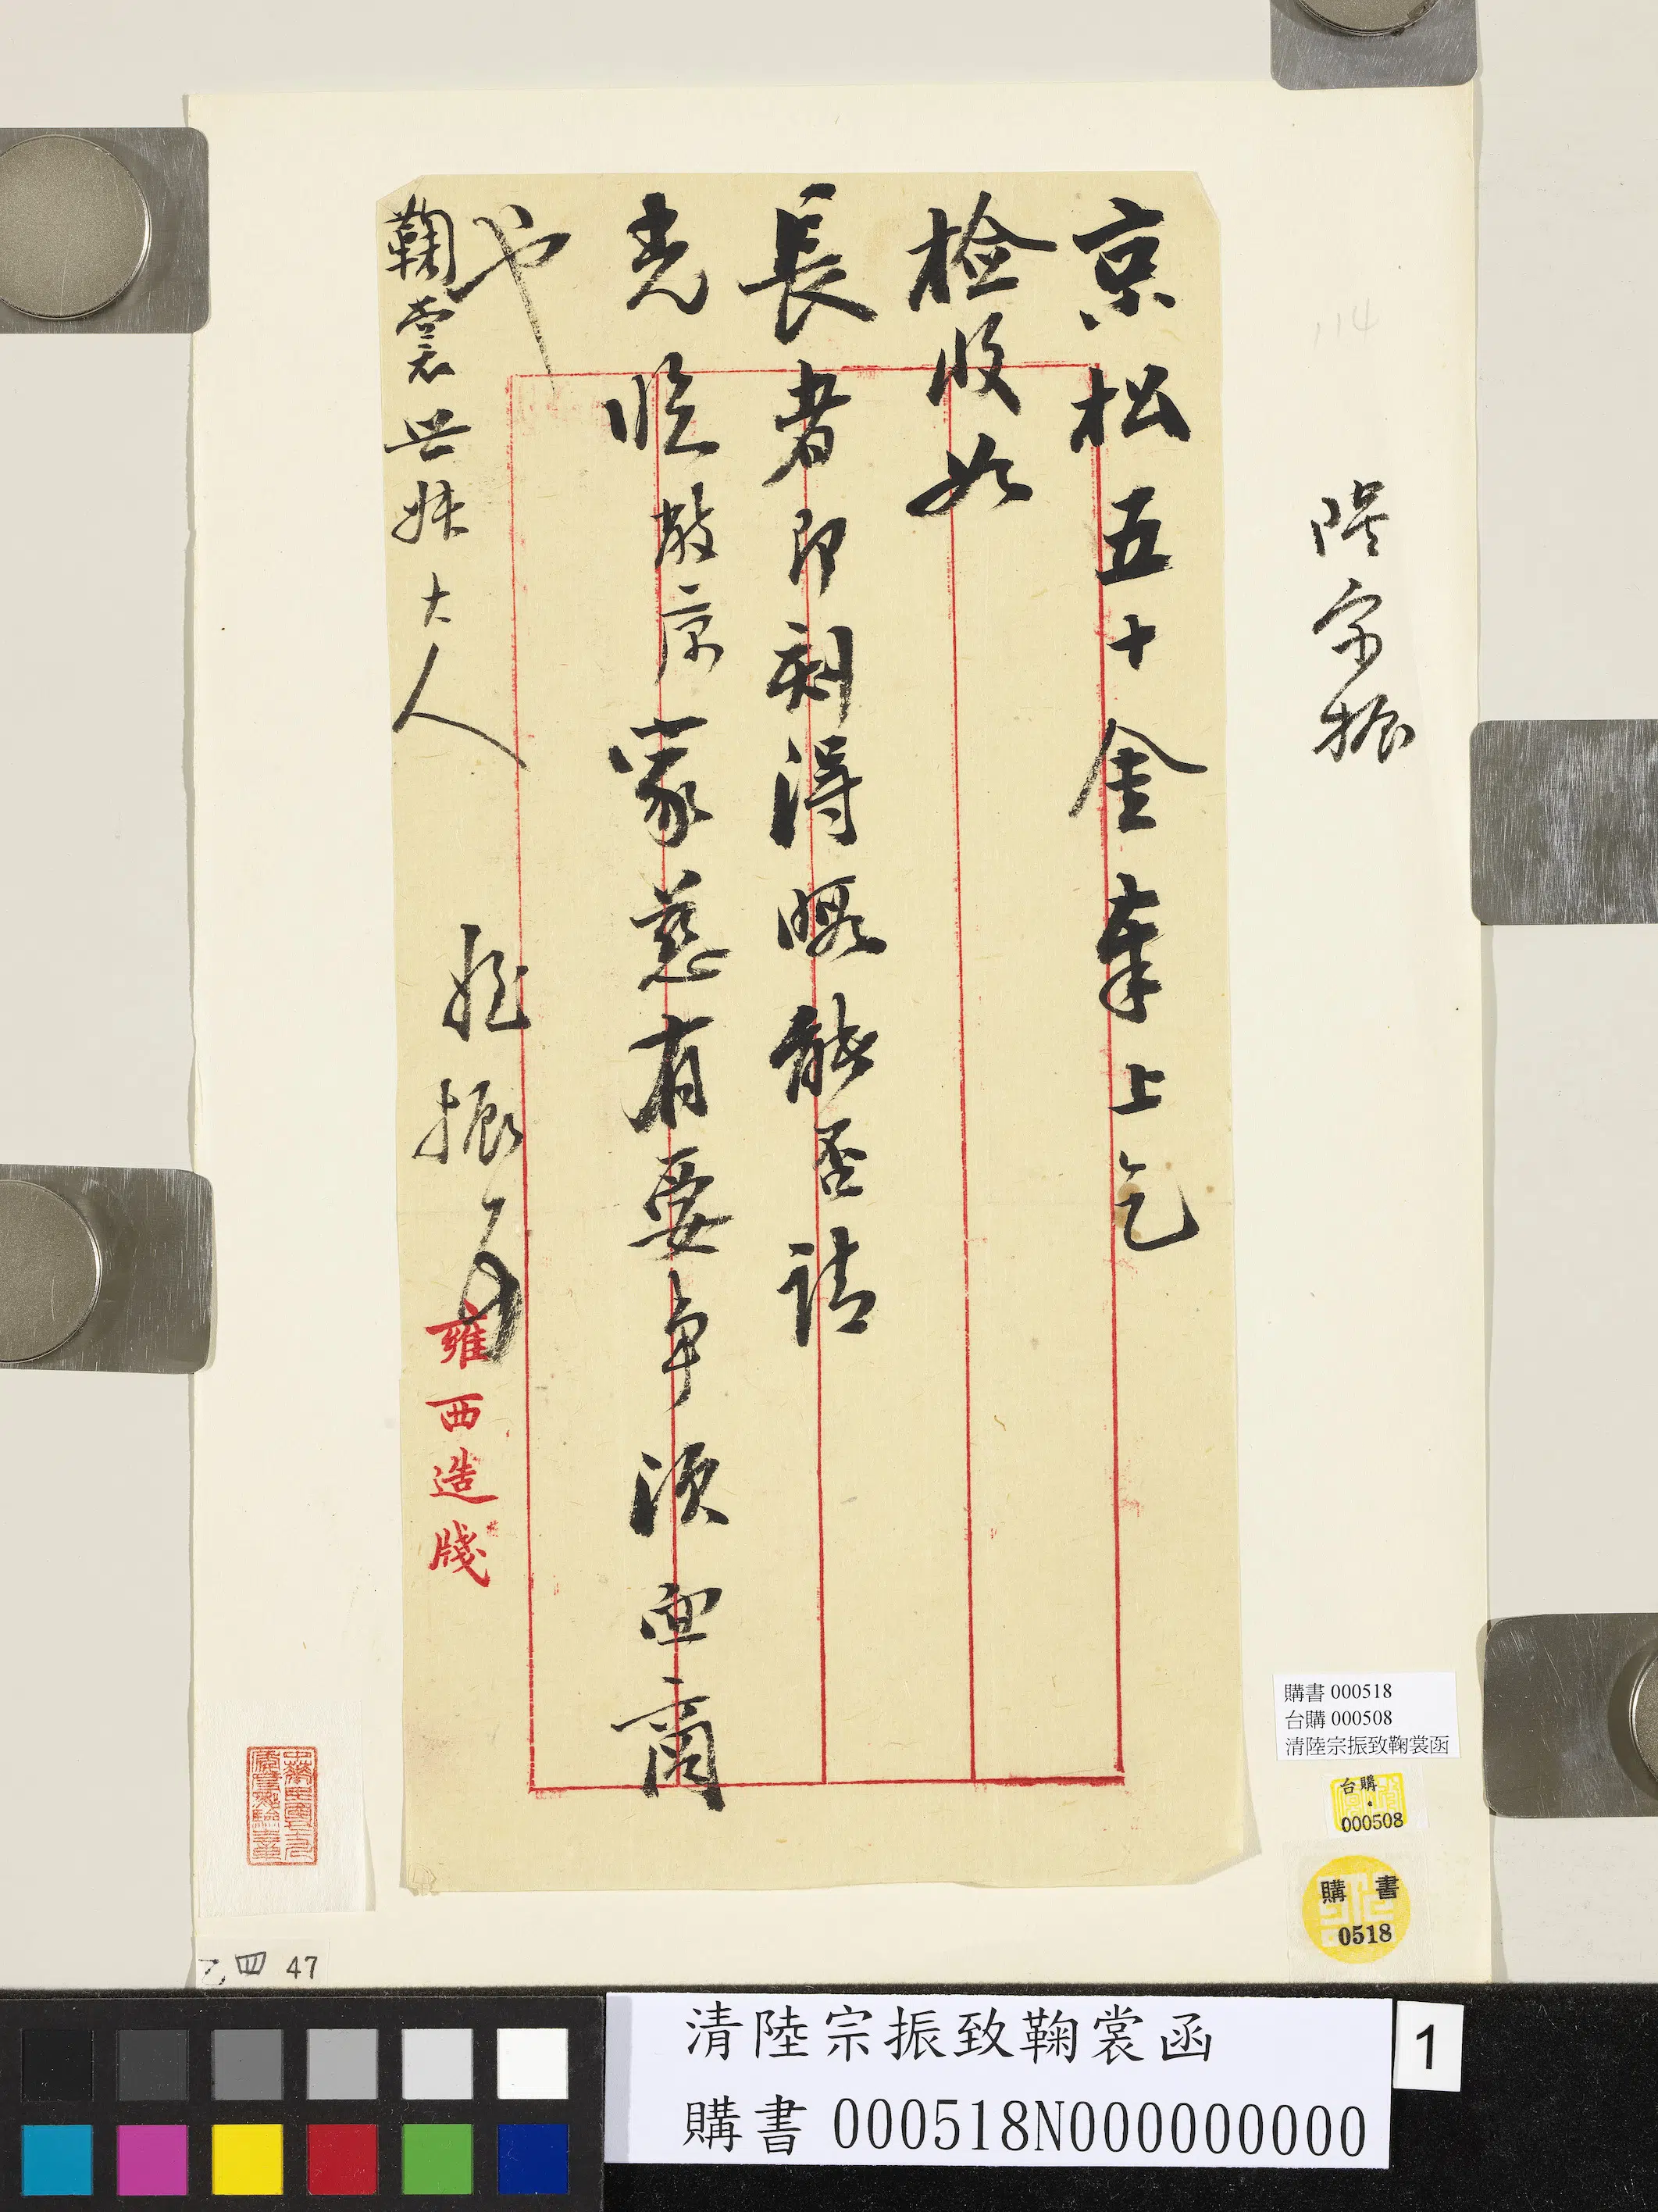 京松五十金奉上乞
檢收如
長者即刻得暇能否請
光臨敝寓家慈有要事須面商
也
鞠裳世姝大人
姪振
雍西造牋
陸宗振
114
購書 000518
台購 000508
清陸宗振致鞠裳函
台購
000508
購書
0518
乙四 47
清陸宗振致鞠裳函
購書 000518N000000000
1